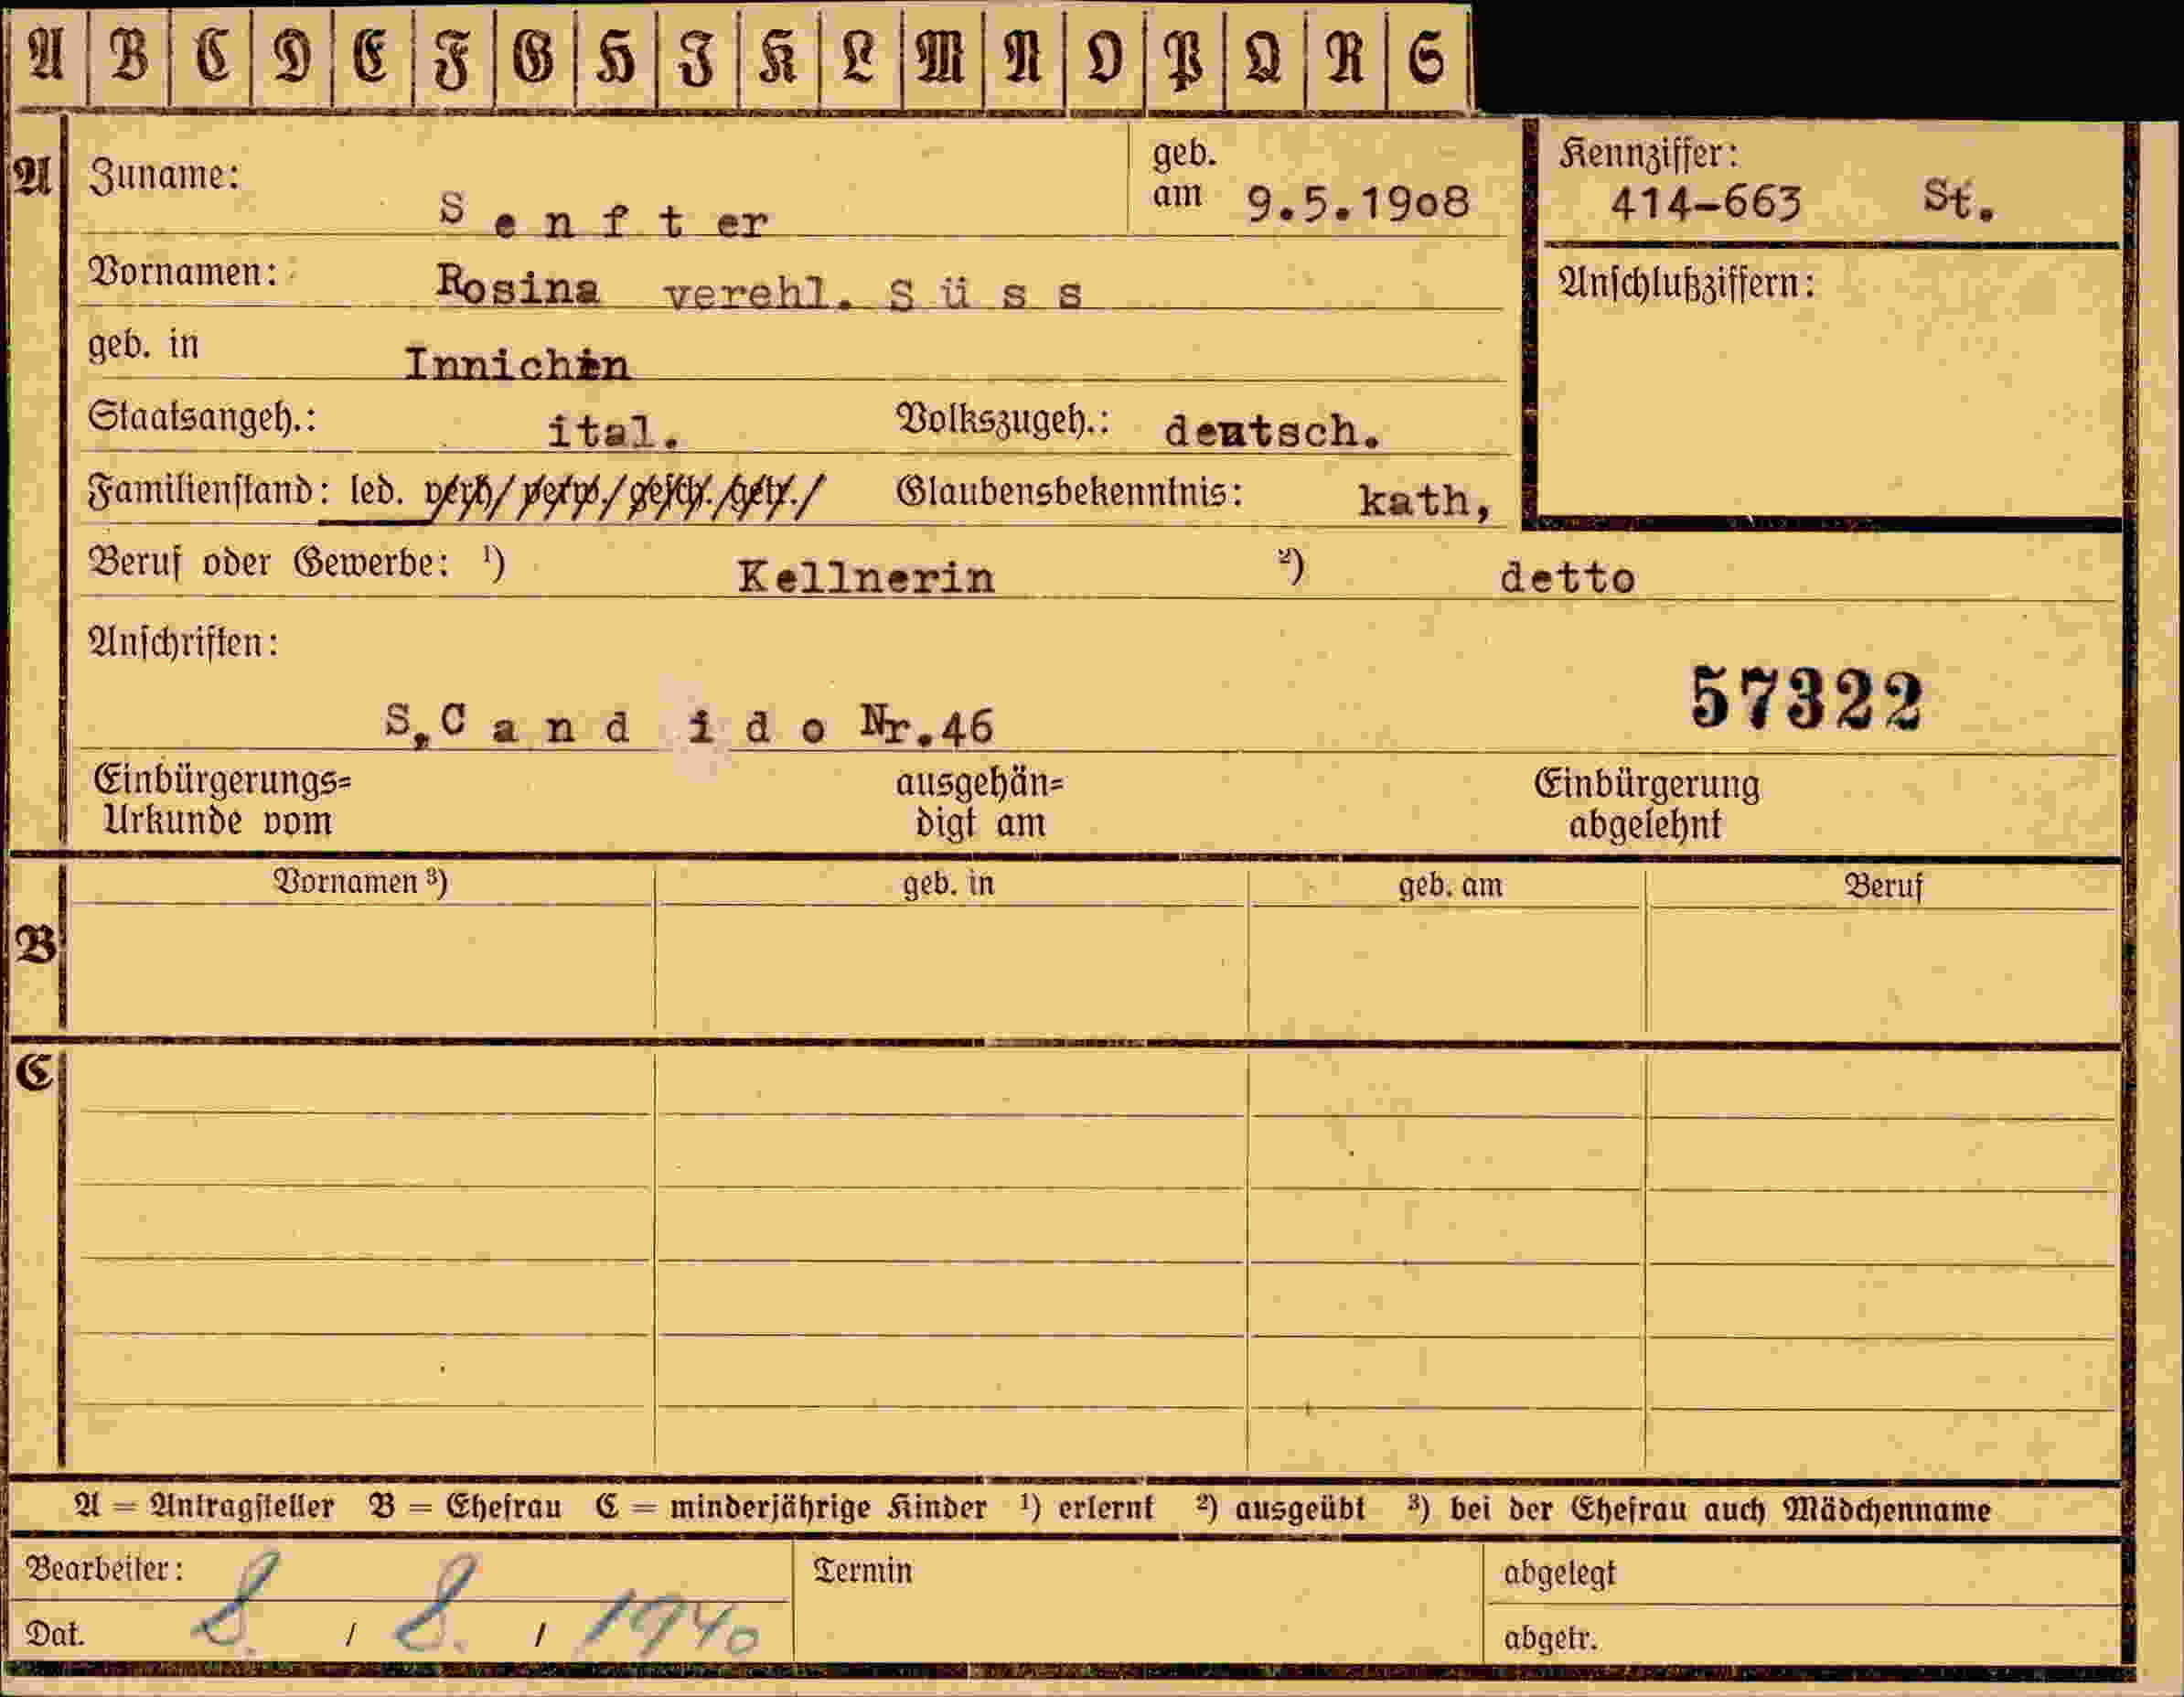 A B C D E F G H I K L M N O P Q R S
A Zuname: Senfter geb. am 9.5.1908 Kennziffer: 414-663 St.
Vornamen: Rosina verehl. Süss Anschlußziffern:
geb. in Innichen
Staatsangeh.: ital. Volkszugeh.: deutsch.
Familienstand: led. verh/ verw./ gesch./getr./ Glaubensbekenntnis: kath,
Beruf oder Gewerbe: ¹) Kellnerin ²) detto
Anschriften:
57322
S,Candido Nr.46
Einbürgerungs= ausgehän= Einbürgerung
Urkunde vom digt am abgelehnt
Vornamen ³) geb. in geb. am Beruf
B
C
A = Antragsteller B = Ehefrau C = minderjährige Kinder ¹) erlernt ²) ausgeübt ³) bei der Ehefrau auch Mädchenname
Bearbeiter: Termin abgelegt
Dat. 8. / 8. / 1940 abgetr.